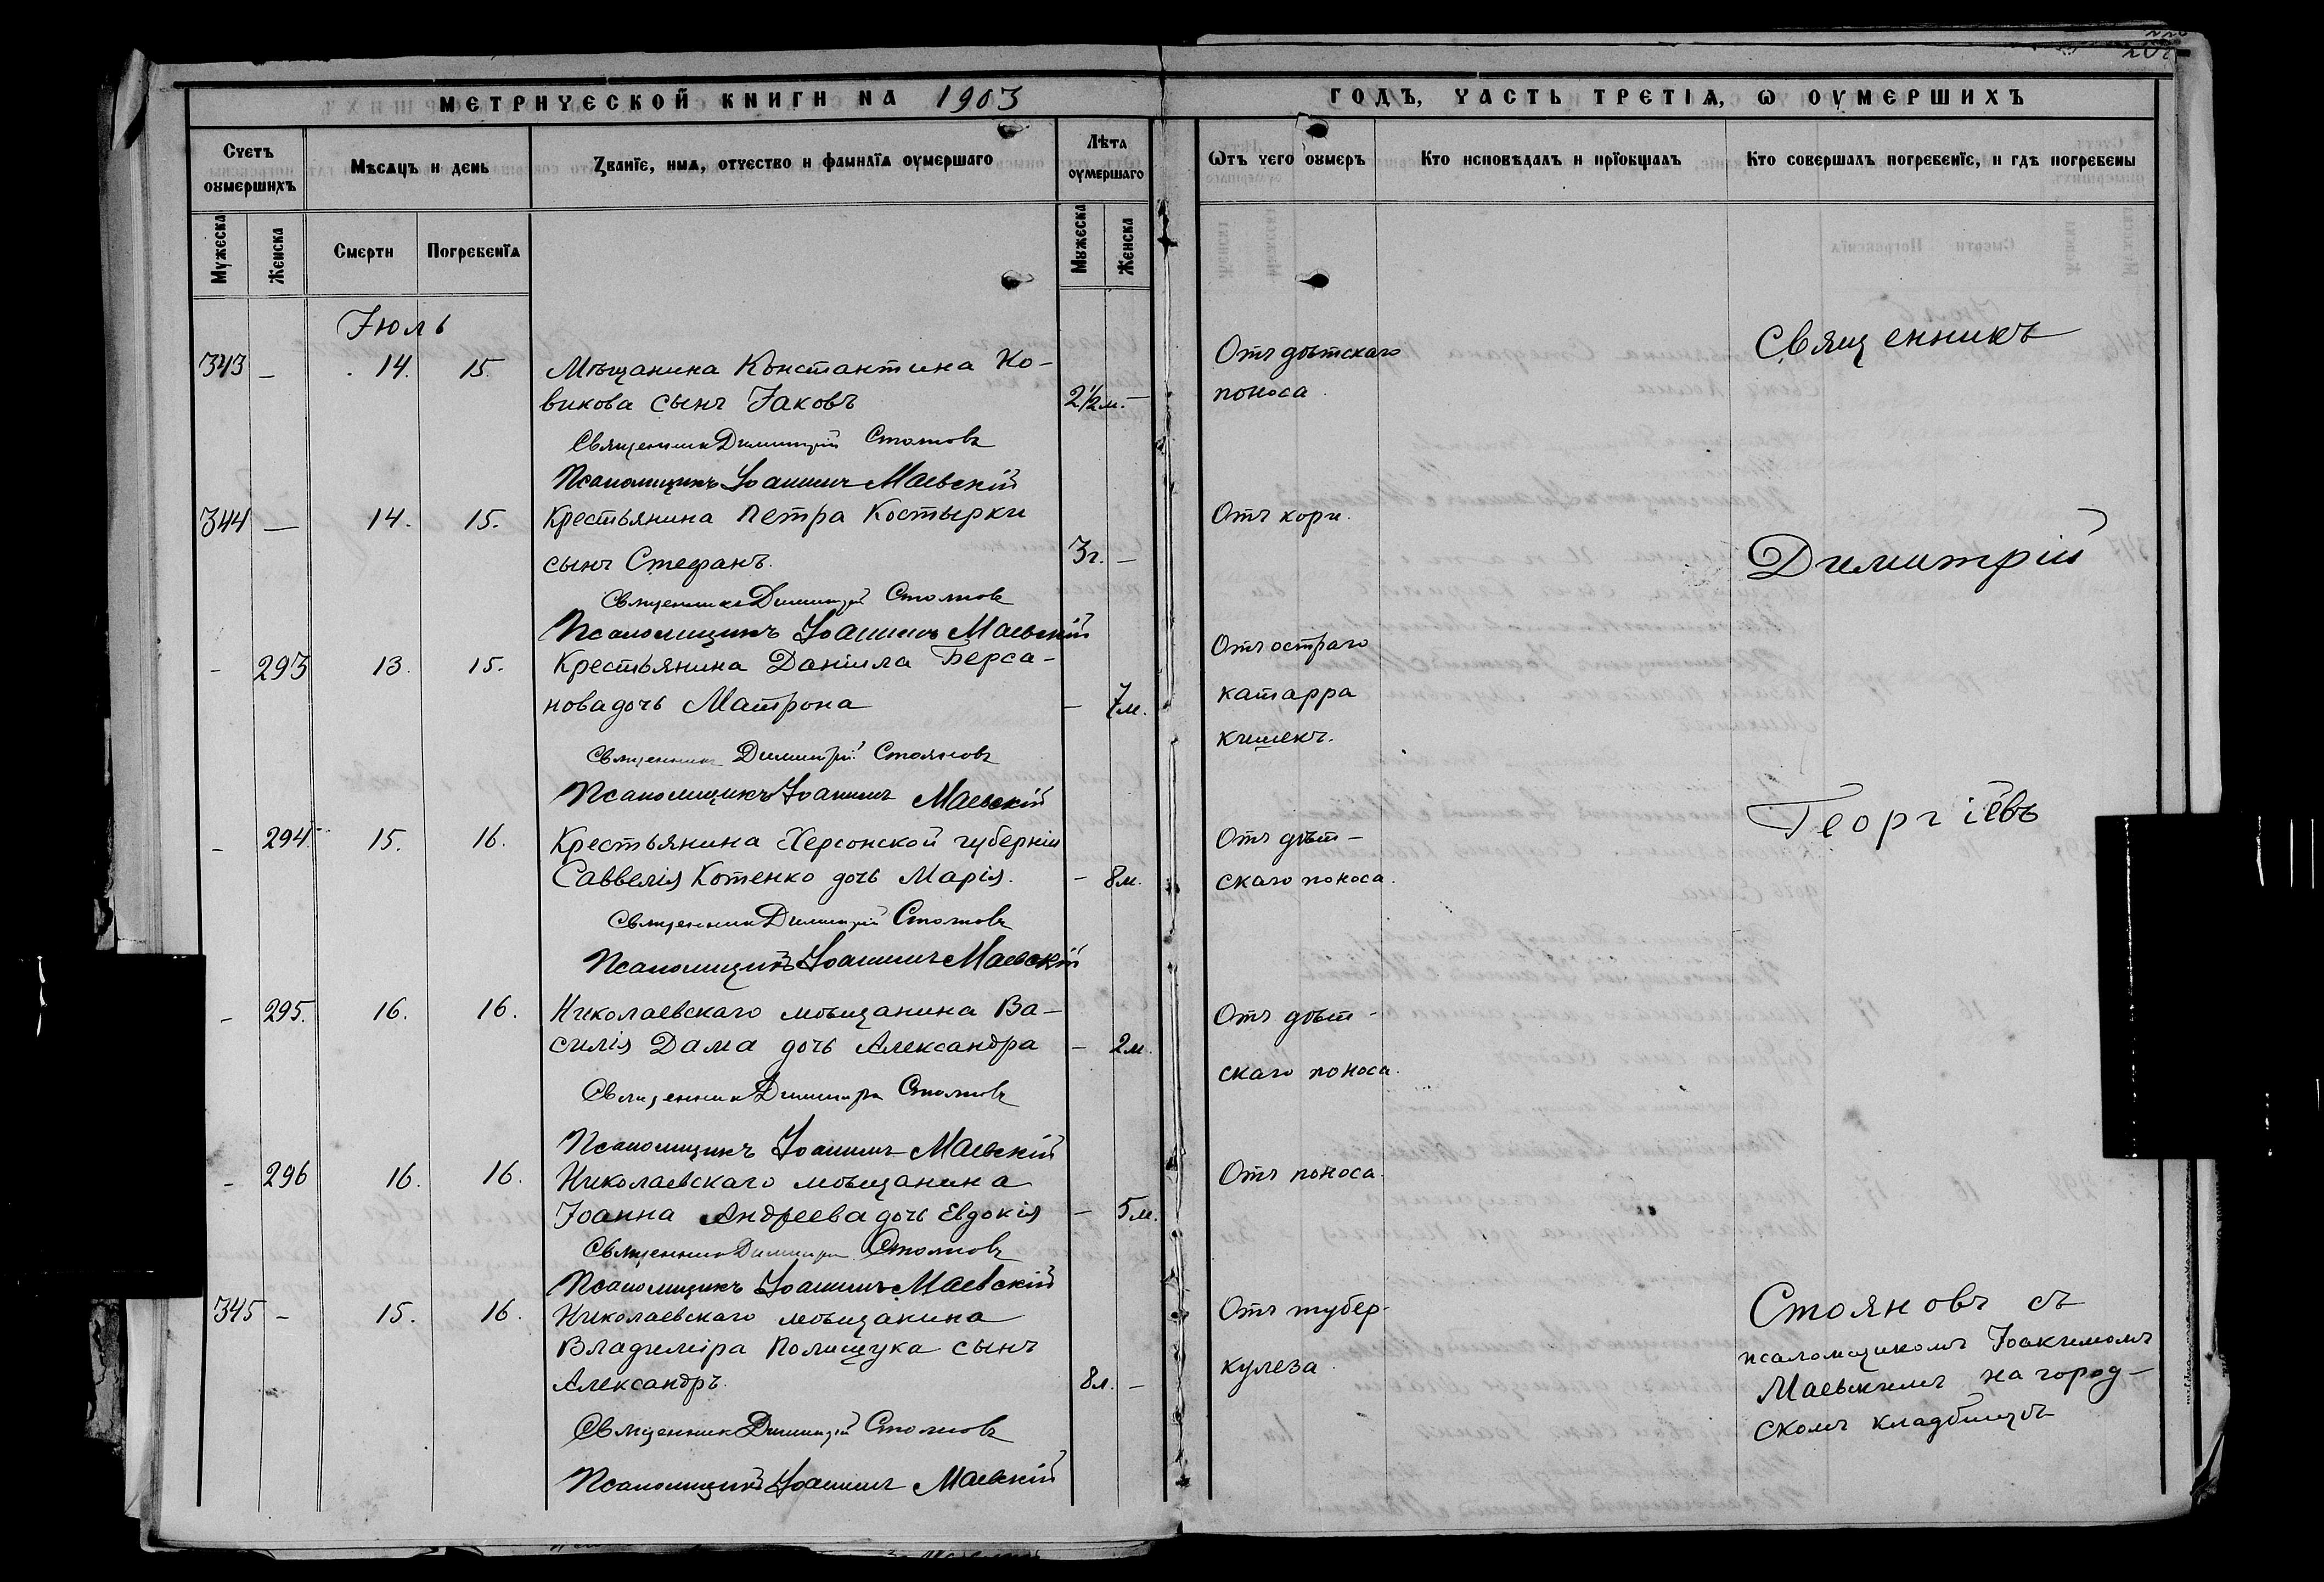 МЕТРИЧЕСКОЙ КНИГИ НА 1903
ГОДЪ, ЧАСТЬ ТРЕТІЯ, Ѡ ОУМЕРШИХЪ
Счетъ оумершихъ
Мѣсяцъ и день
Званїе, имя, отчество и фамилїя оумершаго
Лѣта оумершаго
Ѿтъ чего оумеръ
Кто исповѣдалъ и прїобщалъ
Кто совершалъ погребенїе, и гдѣ погребены
Мужеска
Женска
Смерти
Погребенїя
Мужеска
Женска
Іюль
343 — 14. 15. Мѣщанина Константина Но-
викова сынъ Іаковъ 2½м. —
Отъ дѣтскаго
поноса
Священникъ Димитрій Стояновъ
Псаломщикъ Іоакимъ Маевскій
344 — 14. 15. Крестьянина Петра Костырки
сынъ Стефанъ. 3г. —
Отъ кори.
Священникъ Димитрій Стояновъ
Псаломщикъ Іоакимъ Маевскій
— 293 13. 15. Крестьянина Даніила Берса-
нова дочь Матрона — 7м.
Отъ остраго
катарра
кишекъ.
Священникъ Димитрій Стояновъ
Псаломщикъ Іоакимъ Маевскій
— 294. 15. 16. Крестьянина Херсонской губерніи
Саввелія Котенко дочь Марія. — 8м.
Отъ дѣт-
скаго поноса.
Священникъ Димитрій Стояновъ
Псаломщикъ Іоакимъ Маевскій
— 295. 16. 16. Николаевскаго мѣщанина Ва-
силія Дама дочь Александра — 2м.
Отъ дѣт-
скаго поноса.
Священникъ Димитрій Стояновъ
Псаломщикъ Іоакимъ Маевскій
— 296 16. 16. Николаевскаго мѣщанина
Іоанна Андреева дочь Евдокія — 5м.
Отъ поноса.
Священникъ Димитрій Стояновъ
Псаломщикъ Іоакимъ Маевскій
345 — 15. 16. Николаевскаго мѣщанина
Владиміра Полищука сынъ
Александръ. 8л. —
Отъ тубер-
кулеза
Священникъ Димитрій Стояновъ
Псаломщикъ Іоакимъ Маевскій
Священникъ
Димитрій
Георгіевъ
Стояновъ съ
псаломщикомъ Іоакимомъ
Маевскимъ на город-
скомъ кладбищѣ